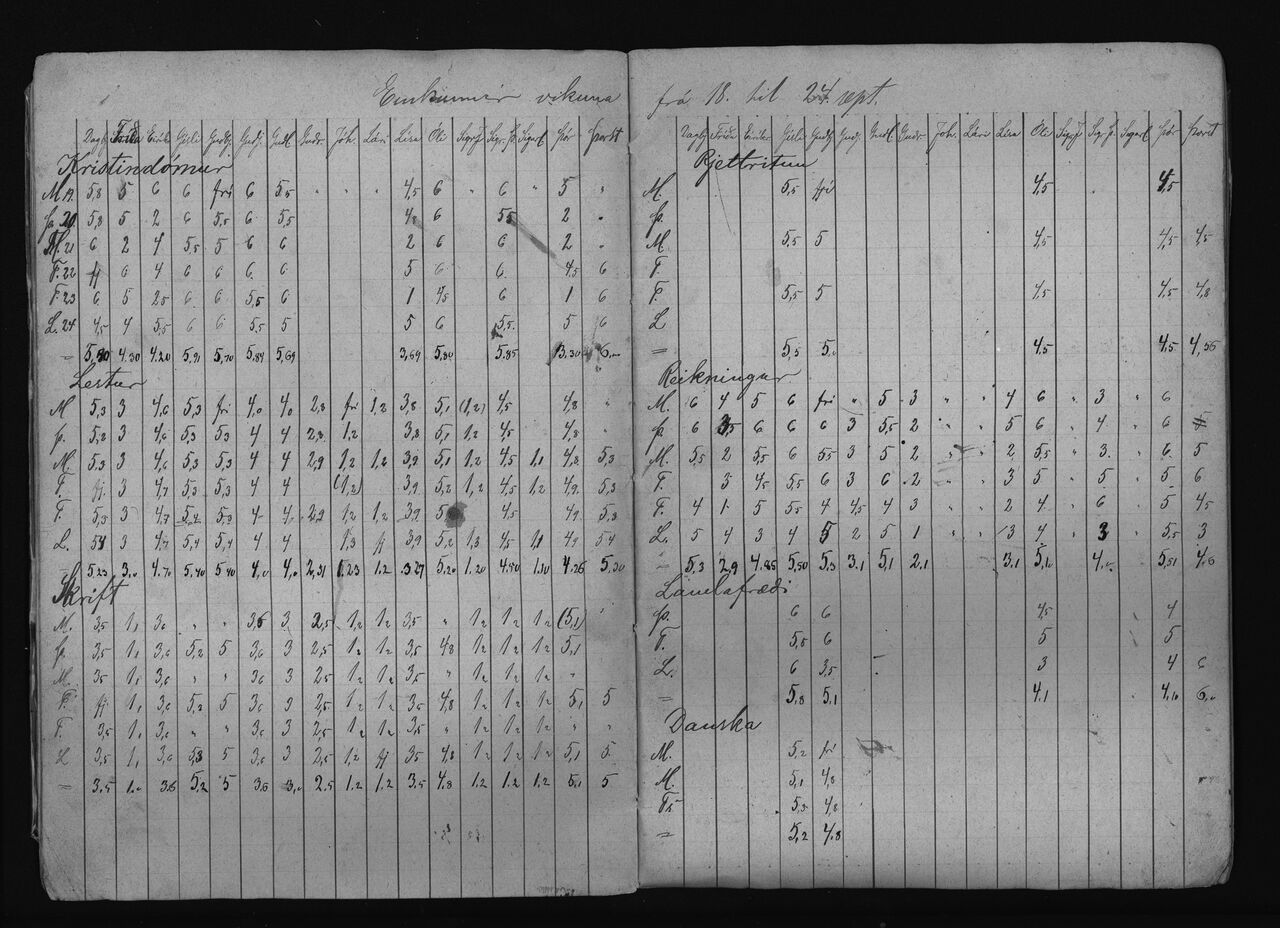 Einkunnir vikuna frá 18. til 24. sept.
Dagbj Frida Eirík Gísli Guðbj. Guðj. Guðl Guðr. Jóh. Lári Lísa Óli Sigrj Sigr. J. Sigurl Þór Þorst
Kristindómur
M. 19. 5,8 5 6 6 frí 6 5,5 4,5 6 6 5
Þ. 20. 5,8 5 2 6 5,5 6 5,5 6 5,5 2
M. 21 6 2 4 5,5 5 6 6 2 6 6 2
F. 22 fj 6 4 6 6 6 6 5 6 6 4,5 6
F. 23 6 5 2,5 6 6 5,5 6 1 4,5 6 1 6
L. 24 4,5 4 5,5 6 6 5,5 5 5 6 5,5 5 6
= 4.30 4.20 5,91 5,70 5,84 5,69 3,69 5,80 5.85 3.30 6,00
Lestur
M 5,3 3 4,6 5,3 frí 4,0 4,0 2,8 frí 1,2 3,8 5,1 (1,2) 4,5 4,8 "
Þ. 5,2 3 4,6 5,3 5,3 4 4 2,8 1,2 3,8 5,1 1,2 4,5 4,8 "
M. 5,3 3 4,6 5,3 5,3 4 4 2,9 1,2 1,2 3,9 5,1 1,2 4,5 1,1 4,8 5,3
F. fj. 3 4,7 5,3 5,3 4 4 (1,2) 3,9 5,2 1,2 4,5 1,2 4,9 5,3
F. 5,3 3 4,7 5,4 5,3 4 4 2,9 1,2 1,2 3,9 5 4,5 4,9 5,3
L. 5,1 3 4,7 5,4 5,4 4 4 1,3 fj 3,9 5,2 1,3 4,5 1,1 4,9 5,4
= 5.23 3.0 4.70 5.40 5.40 4,0 4,0 2,81 1.23 1.2 3.87 5.20 1.20 4.50 1.10 4.86 5.30
Skrift
M. 3,5 1,1 3,6 " " 3,6 3 2,5 1,2 1,2 3,5 " 1,2 1,2 1,2 (5,1) "
Þ. 3,5 1,1 3,6 5,2 5 3,6 3 2,5 1,2 1,2 3,5 4,8 1,2 1,2 1,2 5,1
M. 3,5 1,1 3,6 " " 3,6 3 2,5 1,2 1,2 3,5 " 1,2 1,2 1,2 "
F. fj 1,1 3,6 5,2 5 3,6 3 2,5 1,2 1,2 3,5 4,8 1,2 1,2 1,2 5,1 5
F. 3,5 1,1 3,6 " " 3,6 3 2,5 1,2 1,2 3,5 " 1,2 1,2 1,2 " "
L 3,5 1,1 3,6 5,3 5 3,6 3 2,5 1,2 fj 3,5 4,8 1,2 1,2 1,2 5,1 5
= 3,5 1.0 3.6 5,2 5 3,6 3,0 2.5 1.2 1.2 3.5 4,8 1.2 1.2 1.2 5,1 5
Dagbj Frida Eirík Gísli Guðbj Guðj. Guðl Guðr. Jóh. Lári Lísa Óli Sigrj Sigr. J. Sigurl Þór Þorst
Rjettritun
M. 5,5 frí 4,5 4,5
Þ.
M. 5,5 5 4,5 4,5 4,5
F.
F. 5,5 5 4,5 4,5 4,8
L
= 5,5 5,0 4,5 4,5 4,56
Reikningur
M. 6 4 5 6 frí " 5 3 " " 4 6 " 3 " 6
Þ. 6 3,5 6 6 6 3 5,5 2 " " 5 6 " 4 " 6
M. 5,5 2 5,5 6 5,5 3 5 2 " " 2 5,5 " 3. " 6 5
F. 3 4,5 5,5 6 3 6 2 " " 3 5 " 5 " 5 6
F. 4 1 5 5,5 4 4,5 4 3 " " 2 4 " 6 5 4,5
L. 5 4 3 4 5 2 5 1 " " 3 4 " 3 " 5,5 3
= 5.3 2,9 4.85 5,50 5,3 3.1 5,1 2.1 3.1 5,10 4,0 5,51 4,6
Landafræði
Þ. 6 6 4,5 4
F. 5,5 6 5 5
L. 6 3,5 3 4 6
= 5,8 5,1 4.1 4,10 6,0
Danska
M. 5,2 frí
M. 5,1 4,8
F. 5,3 4,8
= 5,2 4.8